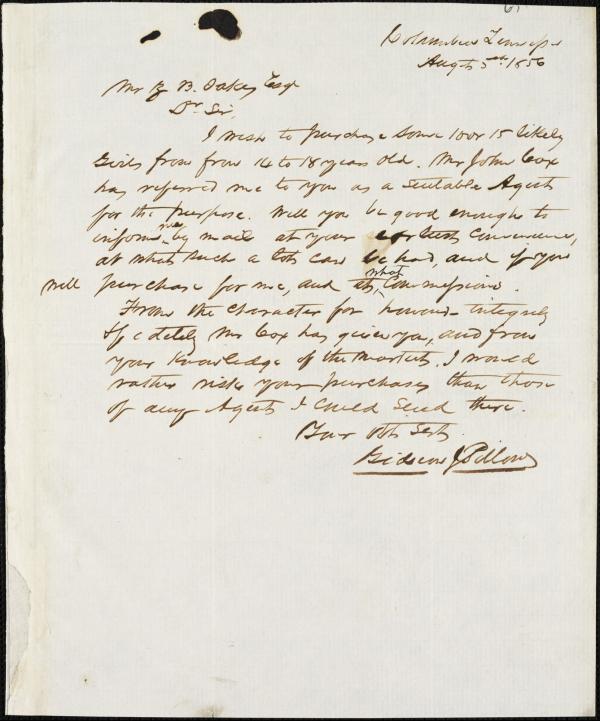 61
Columbia Tennessee
Augt 5th 1856
Mr Z B. Oakes Esqr
Dr Sir,
I wish to purchase some 10 or 15 likely
Girls from from 14 to 18 years old. Mr John Cox
has referred me to you as a suitable Agent
for the purpose. Will you be good enough to
inform me by mail at your earliest convenience,
at what such a lot can be had, and if you
will purchase for me, and at what Commissions.
From the character for honour integrity
& fidelity Mr Cox has given you, and from
your knowledge of the Markets, I would
rather risk your purchases than those
of any Agent I could send there.
Your Obt Sert
Gideon J Pillow